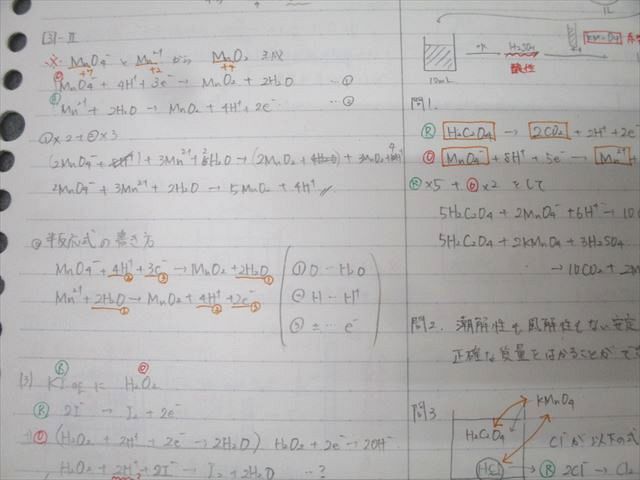 [3]-II
※ MnO₄⁻ と Mn²⁺ から MnO₂ 生成
+7 +2 +4
Ⓞ MnO₄⁻ + 4H⁺ + 3e⁻ → MnO₂ + 2H₂O …①
Ⓡ Mn²⁺ + 2H₂O → MnO₂ + 4H⁺ + 2e⁻ …②
①×2+②×3
2MnO₄⁻ + 3Mn²⁺ + 2H₂O → 5MnO₂ + 4H⁺
◎ 半反応式の書き方
MnO₄⁻ + 4H⁺ + 3e⁻ → MnO₂ + 2H₂O
② ③ ①
Mn²⁺ + 2H₂O → MnO₂ + 4H⁺ + 2e⁻
① ② ③
① O … H₂O
② H … H⁺
③ ± … e⁻
(3) KI aq に H₂O₂
Ⓡ Ⓞ
Ⓡ 2I⁻ → I₂ + 2e⁻
+) Ⓞ (H₂O₂ + 2H⁺ + 2e⁻ → 2H₂O) H₂O₂ + 2e⁻ → 2OH⁻
H₂O₂ + 2H⁺ + 2I⁻ → I₂ + 2H₂O …?
1L
10mL
水
H₂SO₄
酸性
KMnO₄
問1.
Ⓡ H₂C₂O₄ → 2CO₂ + 2H⁺ + 2e⁻
Ⓞ MnO₄⁻ + 8H⁺ + 5e⁻ → Mn²⁺ +
Ⓡ×5 + Ⓞ×2 をして
5H₂C₂O₄ + 2MnO₄⁻ + 6H⁺ → 10C
5H₂C₂O₄ + 2KMnO₄ + 3H₂SO₄
→ 10CO₂ + 2M
問2. 潮解性も風解性もない安定
正確な質量をはかることができ
問3
KMnO₄
H₂C₂O₄
HCl
Cl⁻が以下の式
Ⓡ 2Cl⁻ → Cl₂